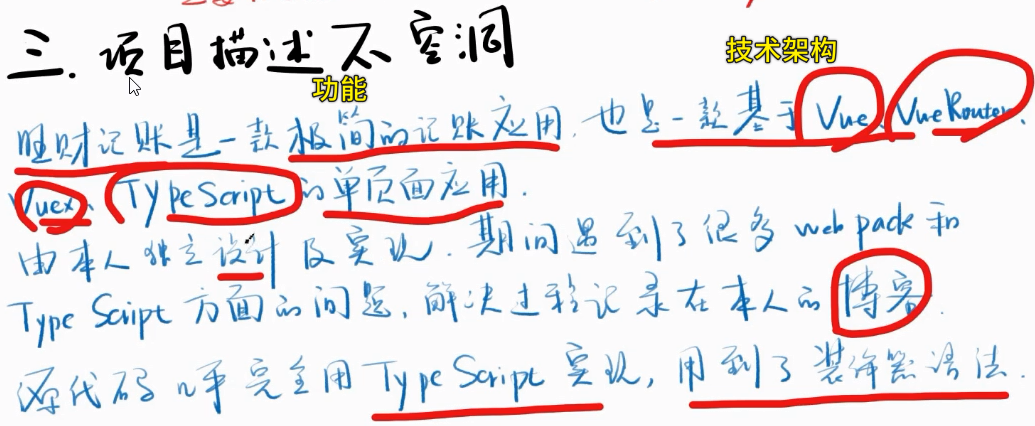 三.项目描述不空洞
功能
技术架构
旺财记账是一款极简的记账应用.也是一款基于Vue、VueRouter、
Vuex、TypeScript的单页面应用.
由本人独立设计及实现.期间遇到了很多webpack和
TypeScript方面的问题,解决过程记录在本人的博客.
源代码几乎完全用TypeScript实现,用到了装饰器语法.